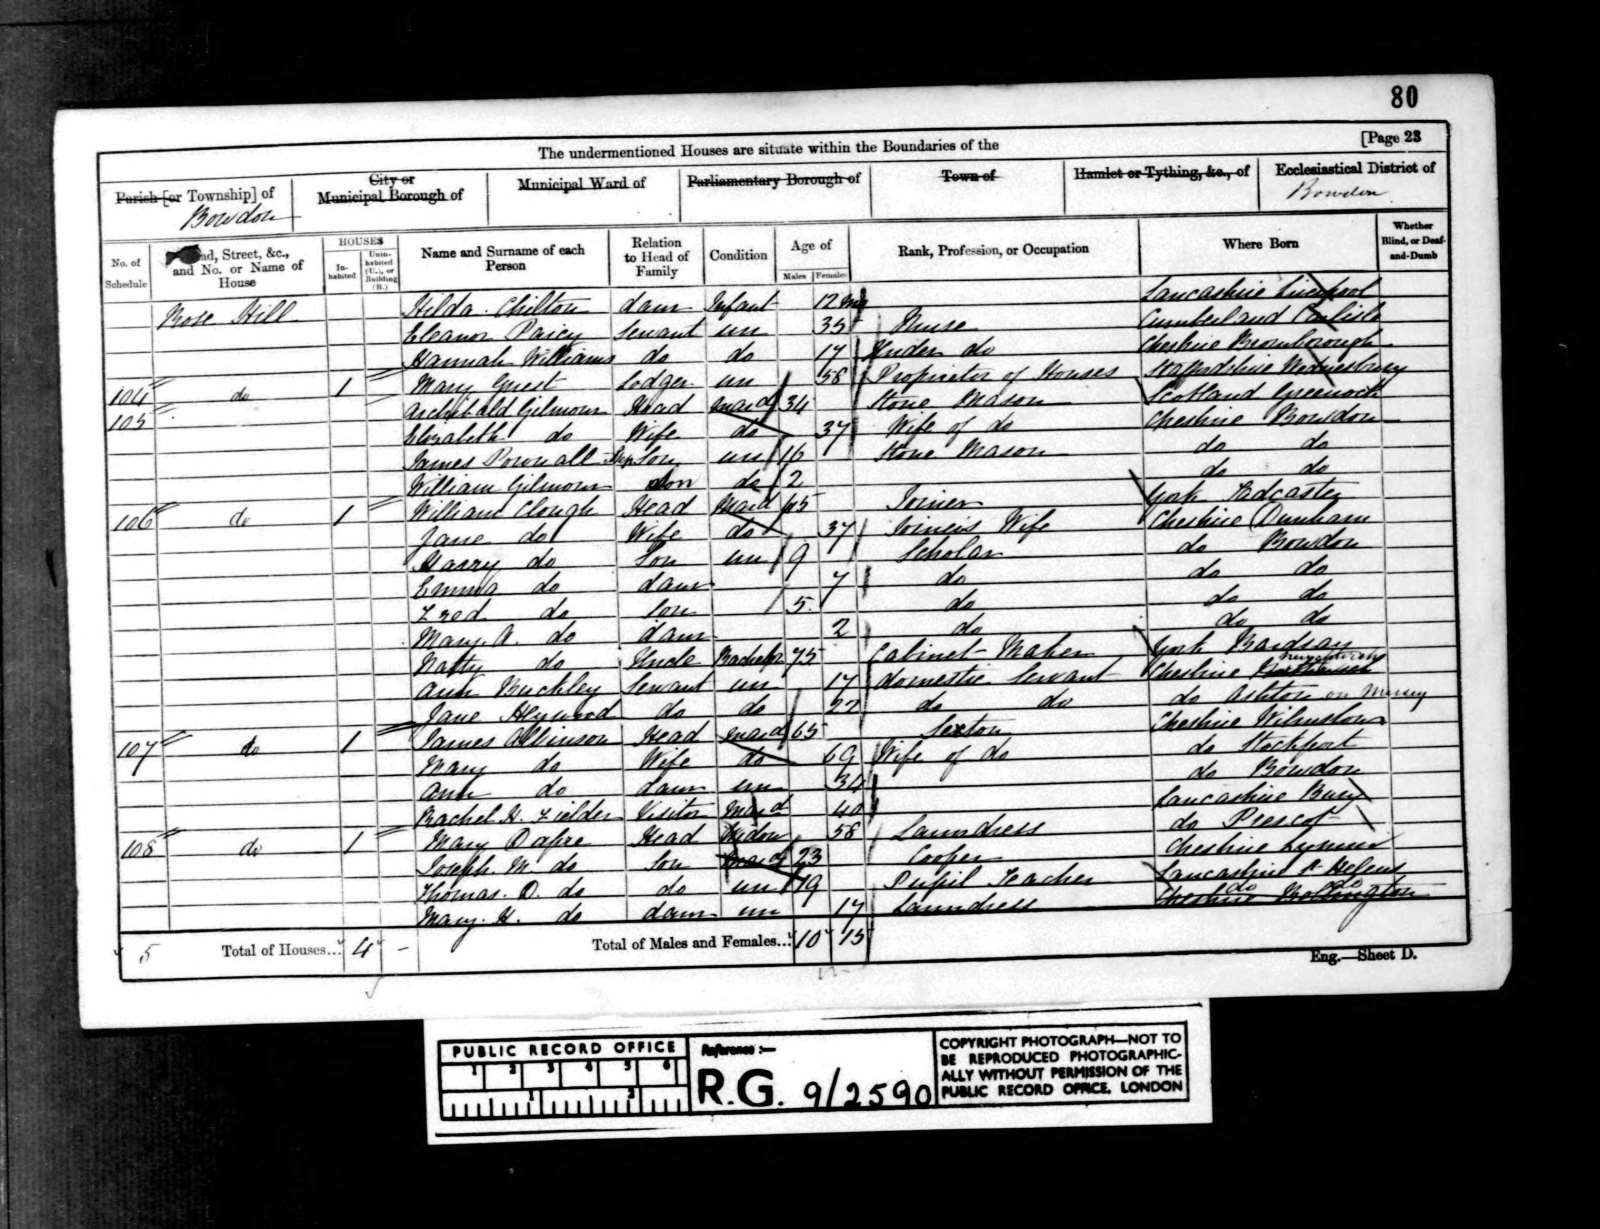 80
[Page 23
The undermentioned Houses are situate within the Boundaries of the
Parish [or Township] of
City or Municipal Borough of
Municipal Ward of
Parliamentary Borough of
Town of
Hamlet or Tything, &c., of
Ecclesiastical District of
Bowdon
Bowdon
No. of Schedule
Road, Street, &c., and No. or Name of House
HOUSES
Inhabited
Uninhabited (U.), or Building (B.)
Name and Surname of each Person
Relation to Head of Family
Condition
Age of
Males
Females
Rank, Profession, or Occupation
Where Born
Whether Blind, or Deaf-and-Dumb
Rose Hill Hilda Chilton daur Infant 12 mo Lancashire Liverpool
Eleanor servant un 35 Nurse Cumberland Carlisle
Hannah Williams do do 17 Under do Cheshire Bromborough
104 do 1 Mary Guest Lodger un 58 Proprietor of Houses Staffordshire Wednesbury
105 Archibald Gilmour Head Mard 34 Stone Mason Scotland Greenock
Elizabeth do Wife do 37 Wife of do Cheshire Bowdon
James Pownall Step Son un 16 Stone Mason do do
William Gilmour Son do 2 do do
106 do 1 William Clough Head Mard 45 Joiner York Tadcaster
Jane do Wife do 37 Joiners Wife Cheshire Dunham
Harry do Son un 9 Scholar do Bowdon
Emma do daur 7 do do do
Fred do Son 5 do do do
Mary A. do daur 2 do do do
do Uncle Bachelor 75 Cabinet Maker York Bardsay
Ann Buckley Servant un 17 domestic Servant Cheshire
Jane Heywood do do 22 do do do Ashton on Mersey
107 do 1 James Allinson Head Mard 65 Sexton Cheshire Wilmslow
Mary do Wife do 69 Wife of do do Stockport
Ann do daur un 34 do Bowdon
Rachel H. Fielder Visitor Mard 40 Lancashire Bury
108 do 1 Mary Head Widow 58 Laundress do Prescot
Joseph M. do Son Mard 23 Cooper Cheshire Lymm
Thomas O. do do un 19 Pupil Teacher Lancashire St Helens
Mary H. do daur un 17 Laundress Cheshire Mollington
do do
5 Total of Houses... 4 - Total of Males and Females... 10 15
Eng.—Sheet D.
PUBLIC RECORD OFFICE
1 2 3 4 5 6
1 2
Reference :—
R.G. 9/2590
COPYRIGHT PHOTOGRAPH—NOT TO
BE REPRODUCED PHOTOGRAPHIC-
ALLY WITHOUT PERMISSION OF THE
PUBLIC RECORD OFFICE, LONDON